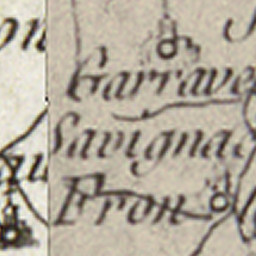 Garrave
Savignac
Fron